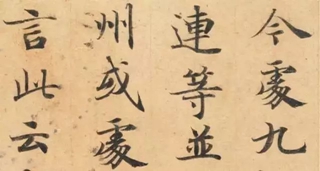 今處九
連等並
州或處
言此云